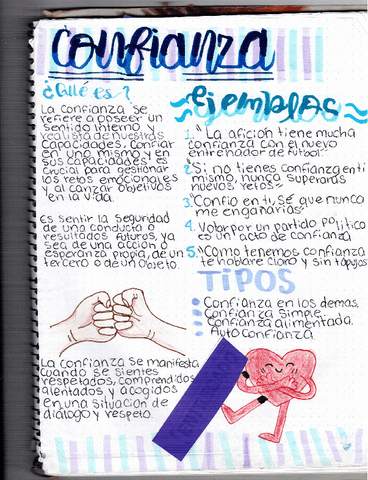 Confianza
¿Qué es?
La confianza se
refiere a poseer un
sentido interno y
realista de nuestras
capacidades, confiar
en uno mismo y en
sus capacidades es
crucial para gestionar
los retos emocionales
y alcanzar objetivos
en la vida.
Es sentir la seguridad
de una conducta o
resultados futuros, ya
sea de una acción o
esperanza propia, de un
tercero o de un objeto.
La confianza se manifiesta
cuando se sientes
respetados, comprendidos
alentados y acogidos
en una situación de
dialogo y respeto.
Ejemplos
1. "La afición tiene mucha
confianza con el nuevo
entrenador de futbol"
2. Si no tienes confianza en ti
mismo, nunca superarás
nuevos retos
3. Confio en tí, sé que nunca
me engañarias"
4. Votar por un partido político
es un acto de confianza
5. "Como tenemos confianza
te hablaré claro y sin tapujos
TIPOS
Confianza en los demas.
Confianza simple.
Confianza alimentada.
Auto confianza.